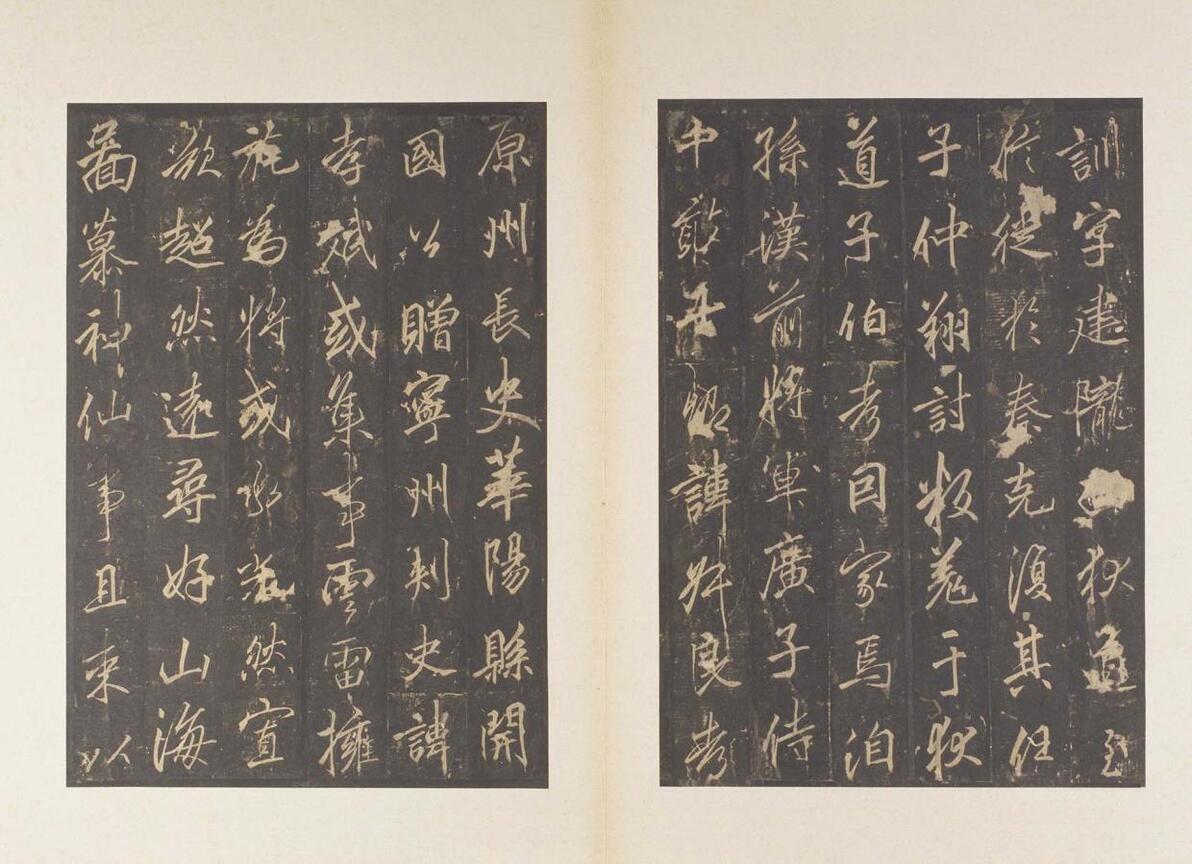 訓字建隴西狄道
於從於秦克復其任
子仲翔討叛羌于狄
道子伯考因家焉洎
孫漢前將軍廣子侍
中敢諱叔良考
原州長史華陽縣開
國公贈寧州刺史諱
孝斌或集事雲雷擁
旄為將或然宣
超然遠尋好山海
圖慕神仙事且束以